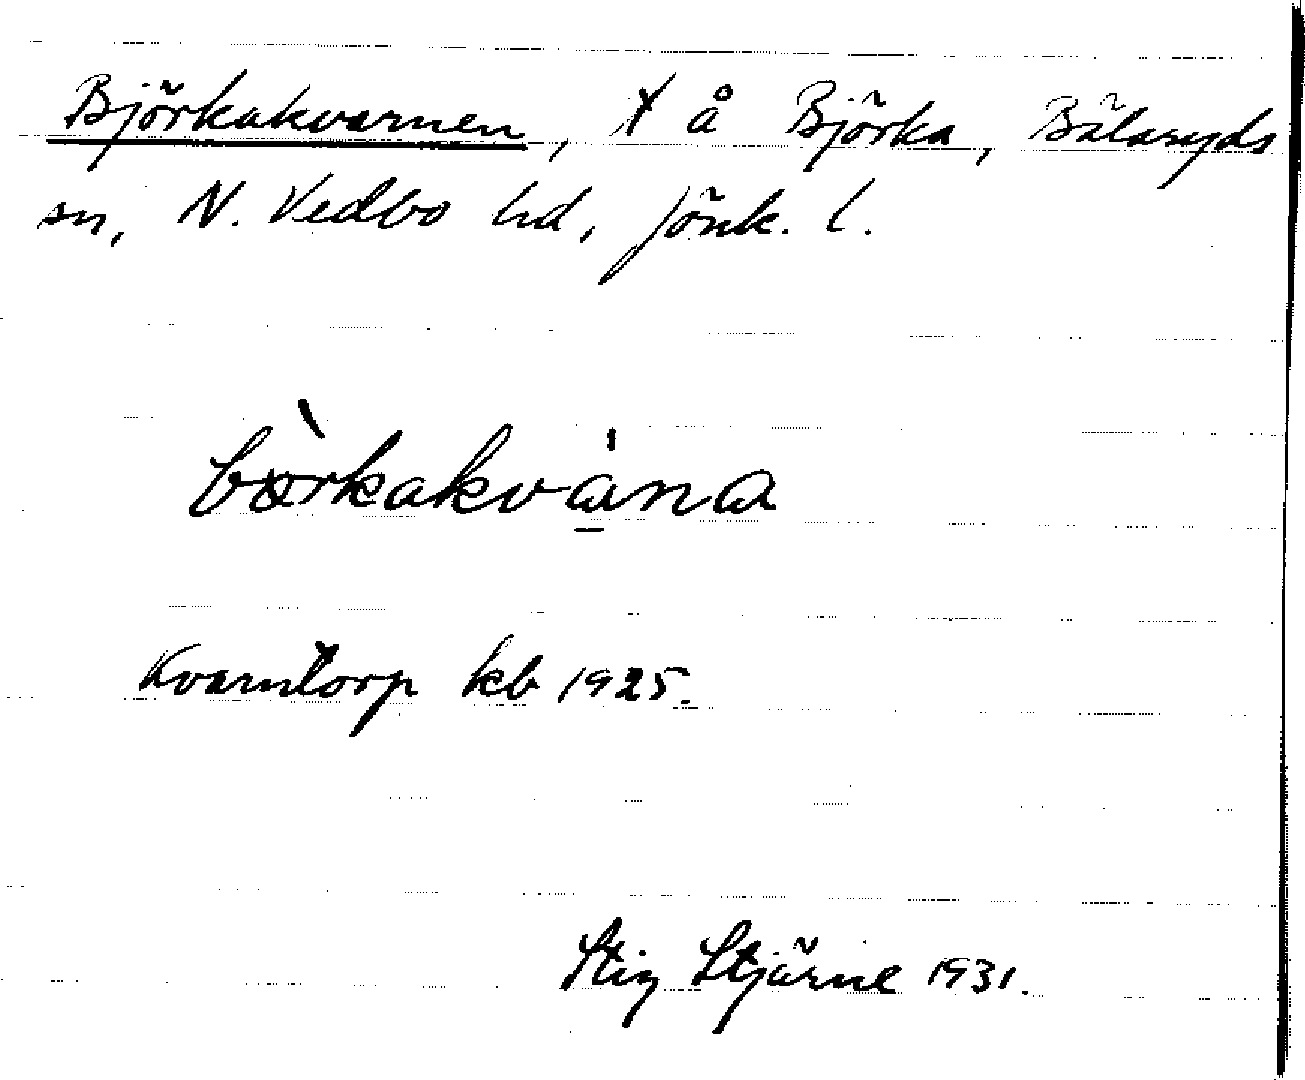 Björkakvarnen, x å Björka, Bälaryds
sn, N. Vedbo hd, Jönk. l.
bòrkakvána
Kvarntorp kb 1925.
Stig Stjärne 1931.